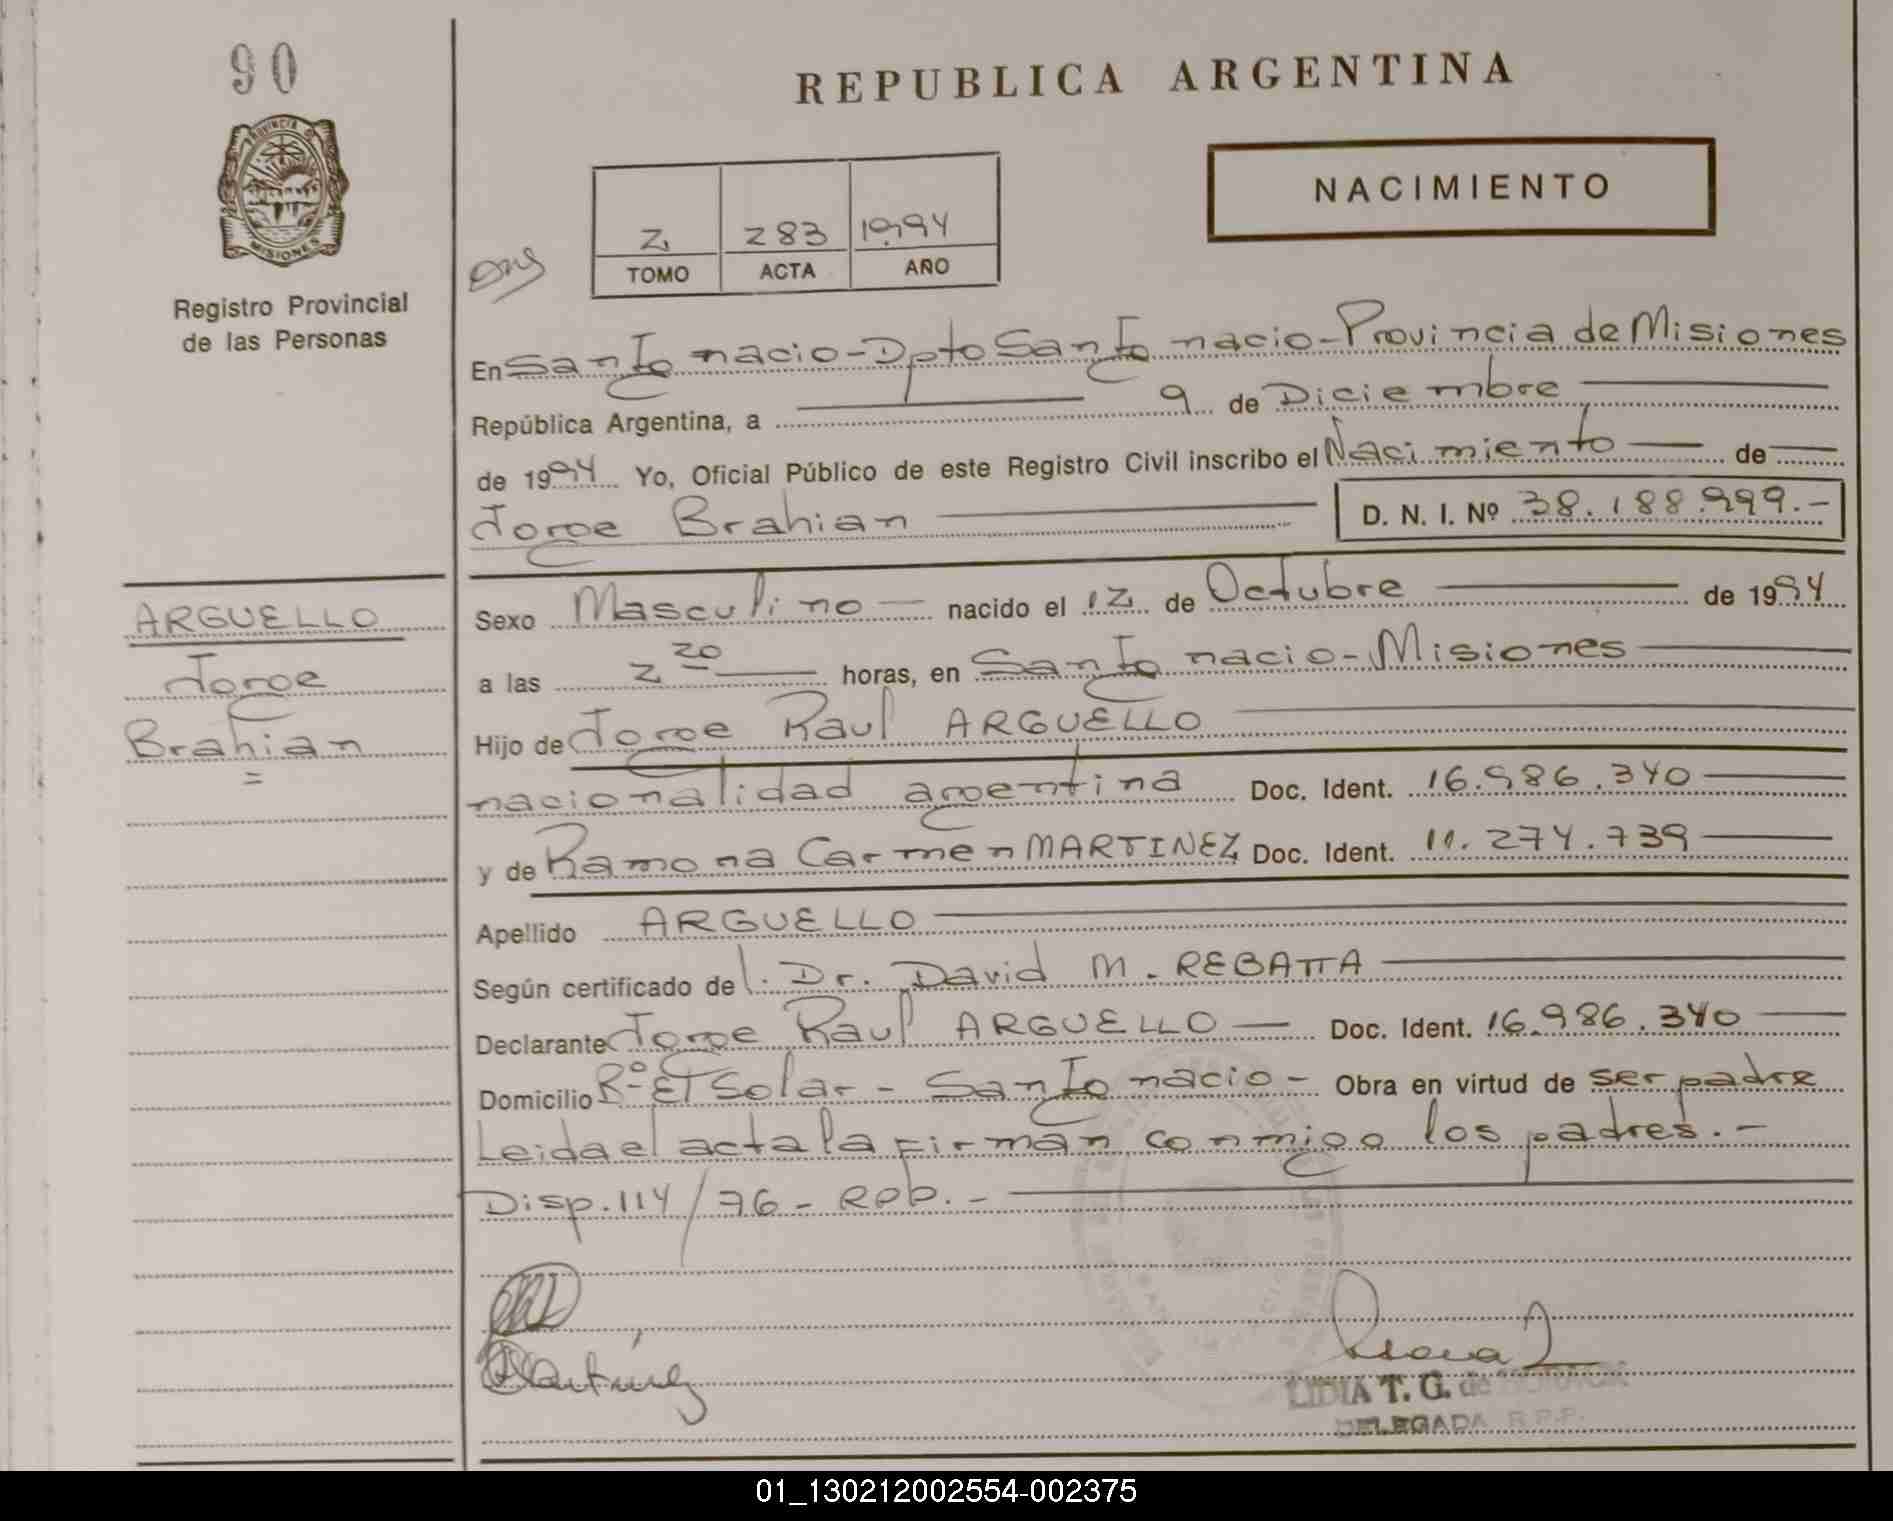 90
REPUBLICA ARGENTINA
PROVINCIA DE
MISIONES
NACIMIENTO
Z 283 1994
TOMO ACTA AÑO
Registro Provincial
de las Personas
En San Ignacio - Dpto San Ignacio - Provincia de Misiones
República Argentina, a 9 de Diciembre
de 1994 Yo, Oficial Público de este Registro Civil inscribo el Nacimiento de
Jorge Brahian D. N. I. Nº 38.188.999.-
ARGUELLO
Jorge
Brahian
Sexo Masculino nacido el 12 de Octubre de 1994
a las 2 20 horas, en San Ignacio - Misiones
Hijo de Jorge Raul ARGUELLO
nacionalidad argentina Doc. Ident. 16.986.340
y de Ramona Carmen MARTINEZ Doc. Ident. 11.274.739
Apellido ARGUELLO
Según certificado de l. Dr. David M. REBATTA
Declarante Jorge Raul ARGUELLO Doc. Ident. 16.986.340
Domicilio Bº El Solar - San Ignacio - Obra en virtud de ser padre
Leida el acta la firman conmigo los padres. -
Disp. 114/76 - Rpp. -
LIDIA T. G. de
DELEGADA R.P.P.
01_130212002554-002375